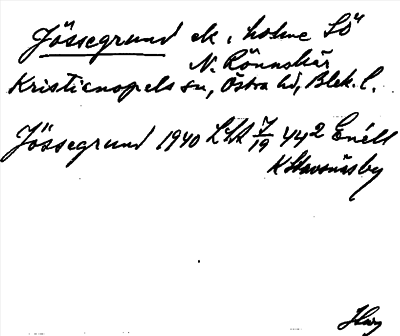 Jössegrund sk. i holme SÖ
N. Rönnskär
Kristianopels sn, Östra hd, Blek. l.
Jössegrund 1940 LUA 7/19 442 Enéll
K Stavsnäsby